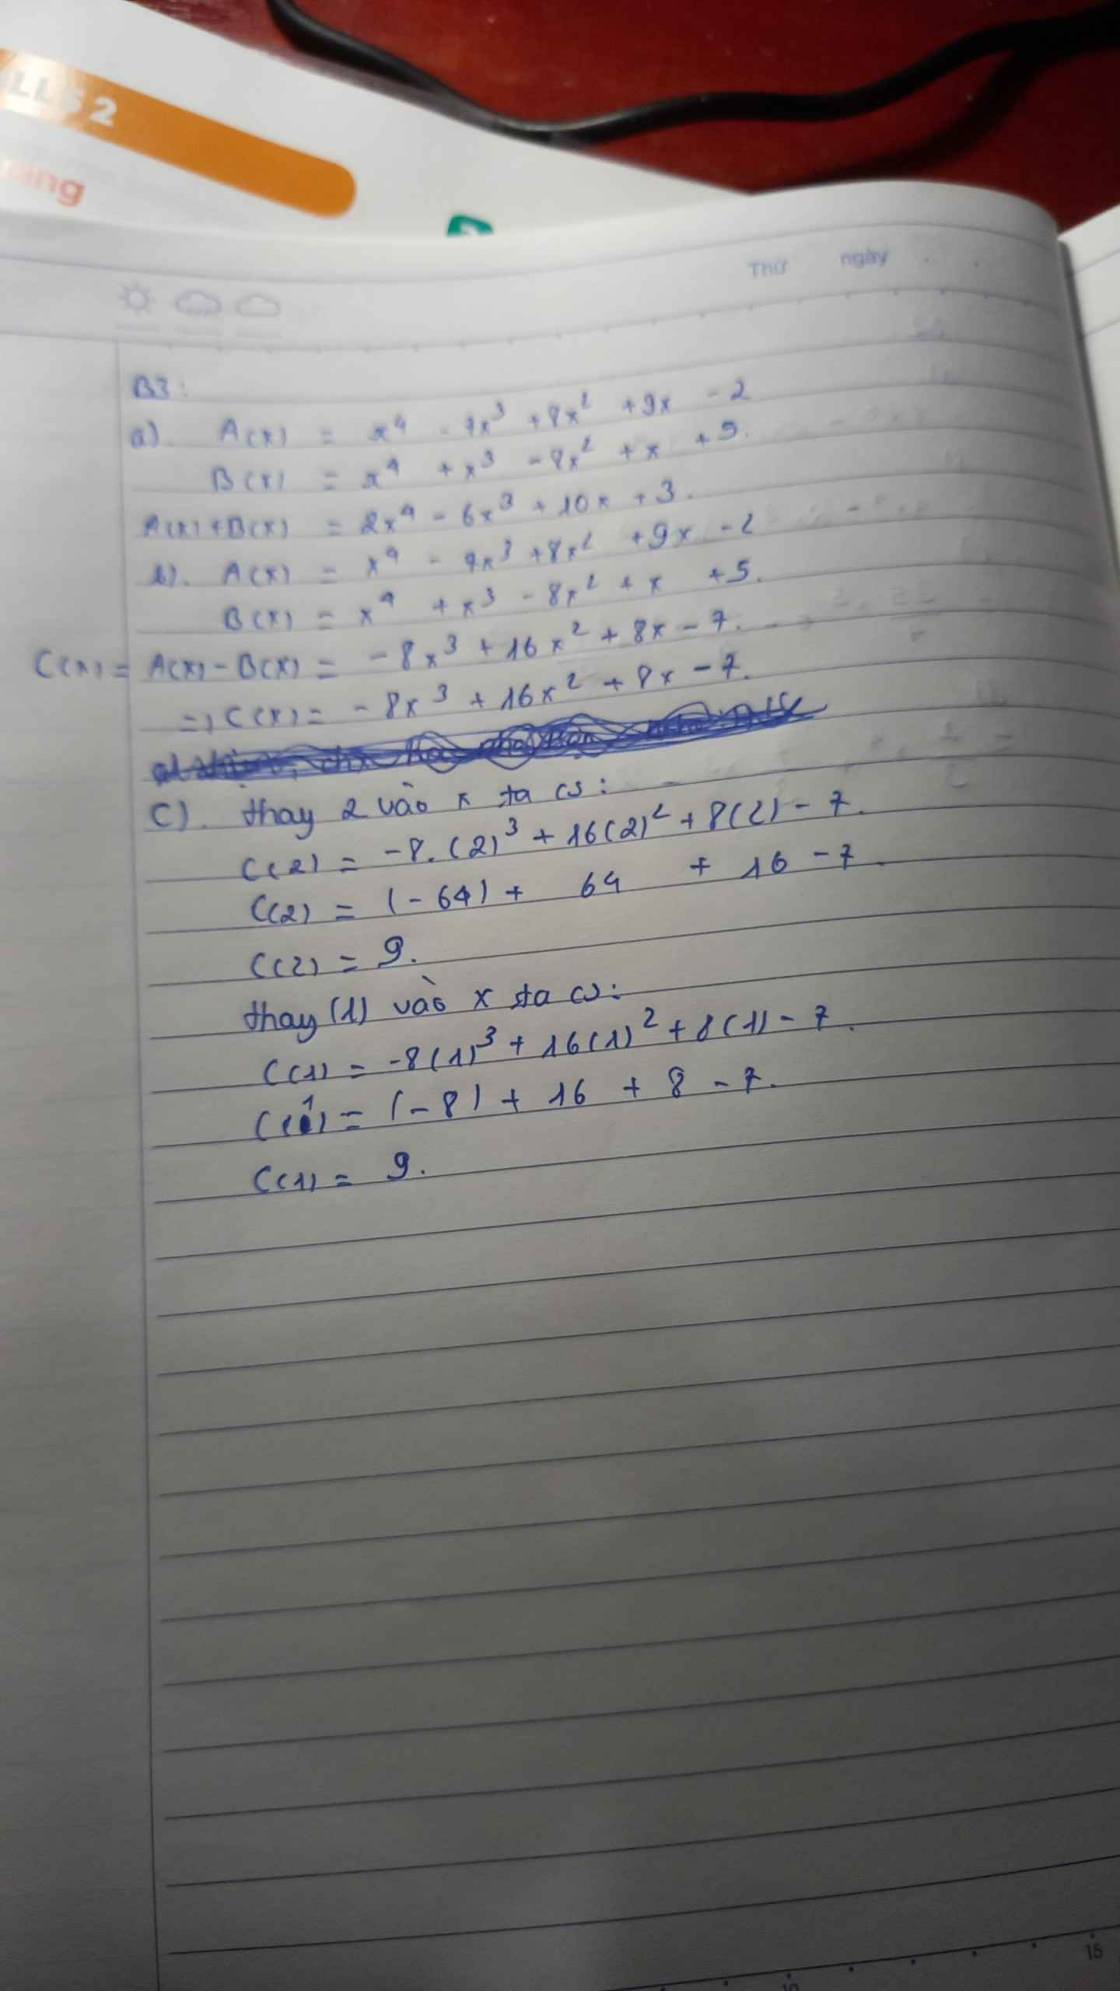 LLS 2
ang
Thứ ngày
B3:
a). A(x) = x⁴ - 7x³ + 8x² + 9x - 2
B(x) = x⁴ + x³ - 8x² + x + 5.
A(x)+B(x) = 2x⁴ - 6x³ + 10x + 3.
b). A(x) = x⁴ - 7x³ + 8x² + 9x - 2
B(x) = x⁴ + x³ - 8x² + x + 5.
C(x) = A(x) - B(x) = - 8x³ + 16x² + 8x - 7.
=> C(x) = - 8x³ + 16x² + 8x - 7.
c). thay 2 vào x ta có:
C(2) = -8.(2)³ + 16(2)² + 8(2) - 7.
C(2) = (-64) + 64 + 16 - 7.
C(2) = 9.
thay (1) vào x ta có:
C(1) = -8(1)³ + 16(1)² + 8(1) - 7.
C(1) = (-8) + 16 + 8 - 7.
C(1) = 9.
10 15